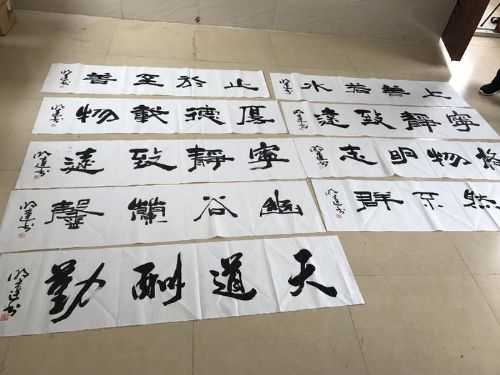 上善若水
寧靜致遠
格物明志
然不群
止於至善
厚德載物
寧靜致遠
幽谷蘭馨
天道酬勤